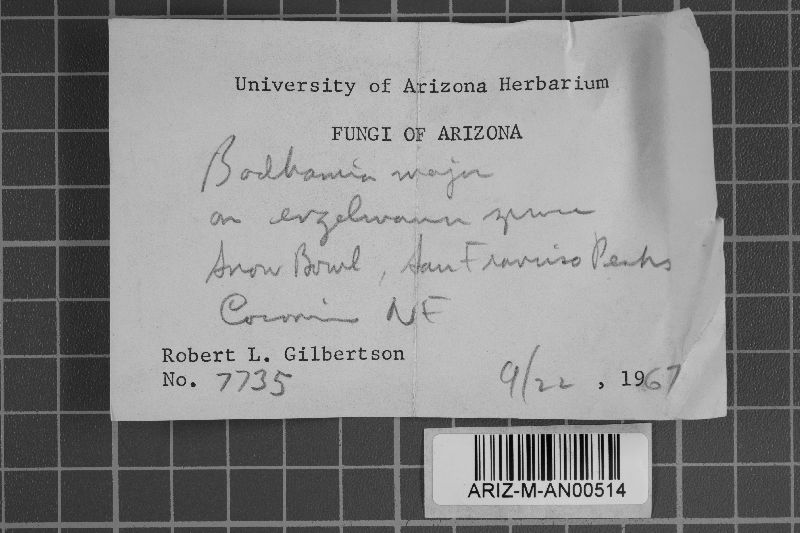 University of Arizona Herbarium
FUNGI OF ARIZONA
Badhamia major
on engelmann spruce
Snow Bowl, San Francisco Peaks
Coconino NF
Robert L. Gilbertson
No. 7735
9/22, 1967
ARIZ-M-AN00514